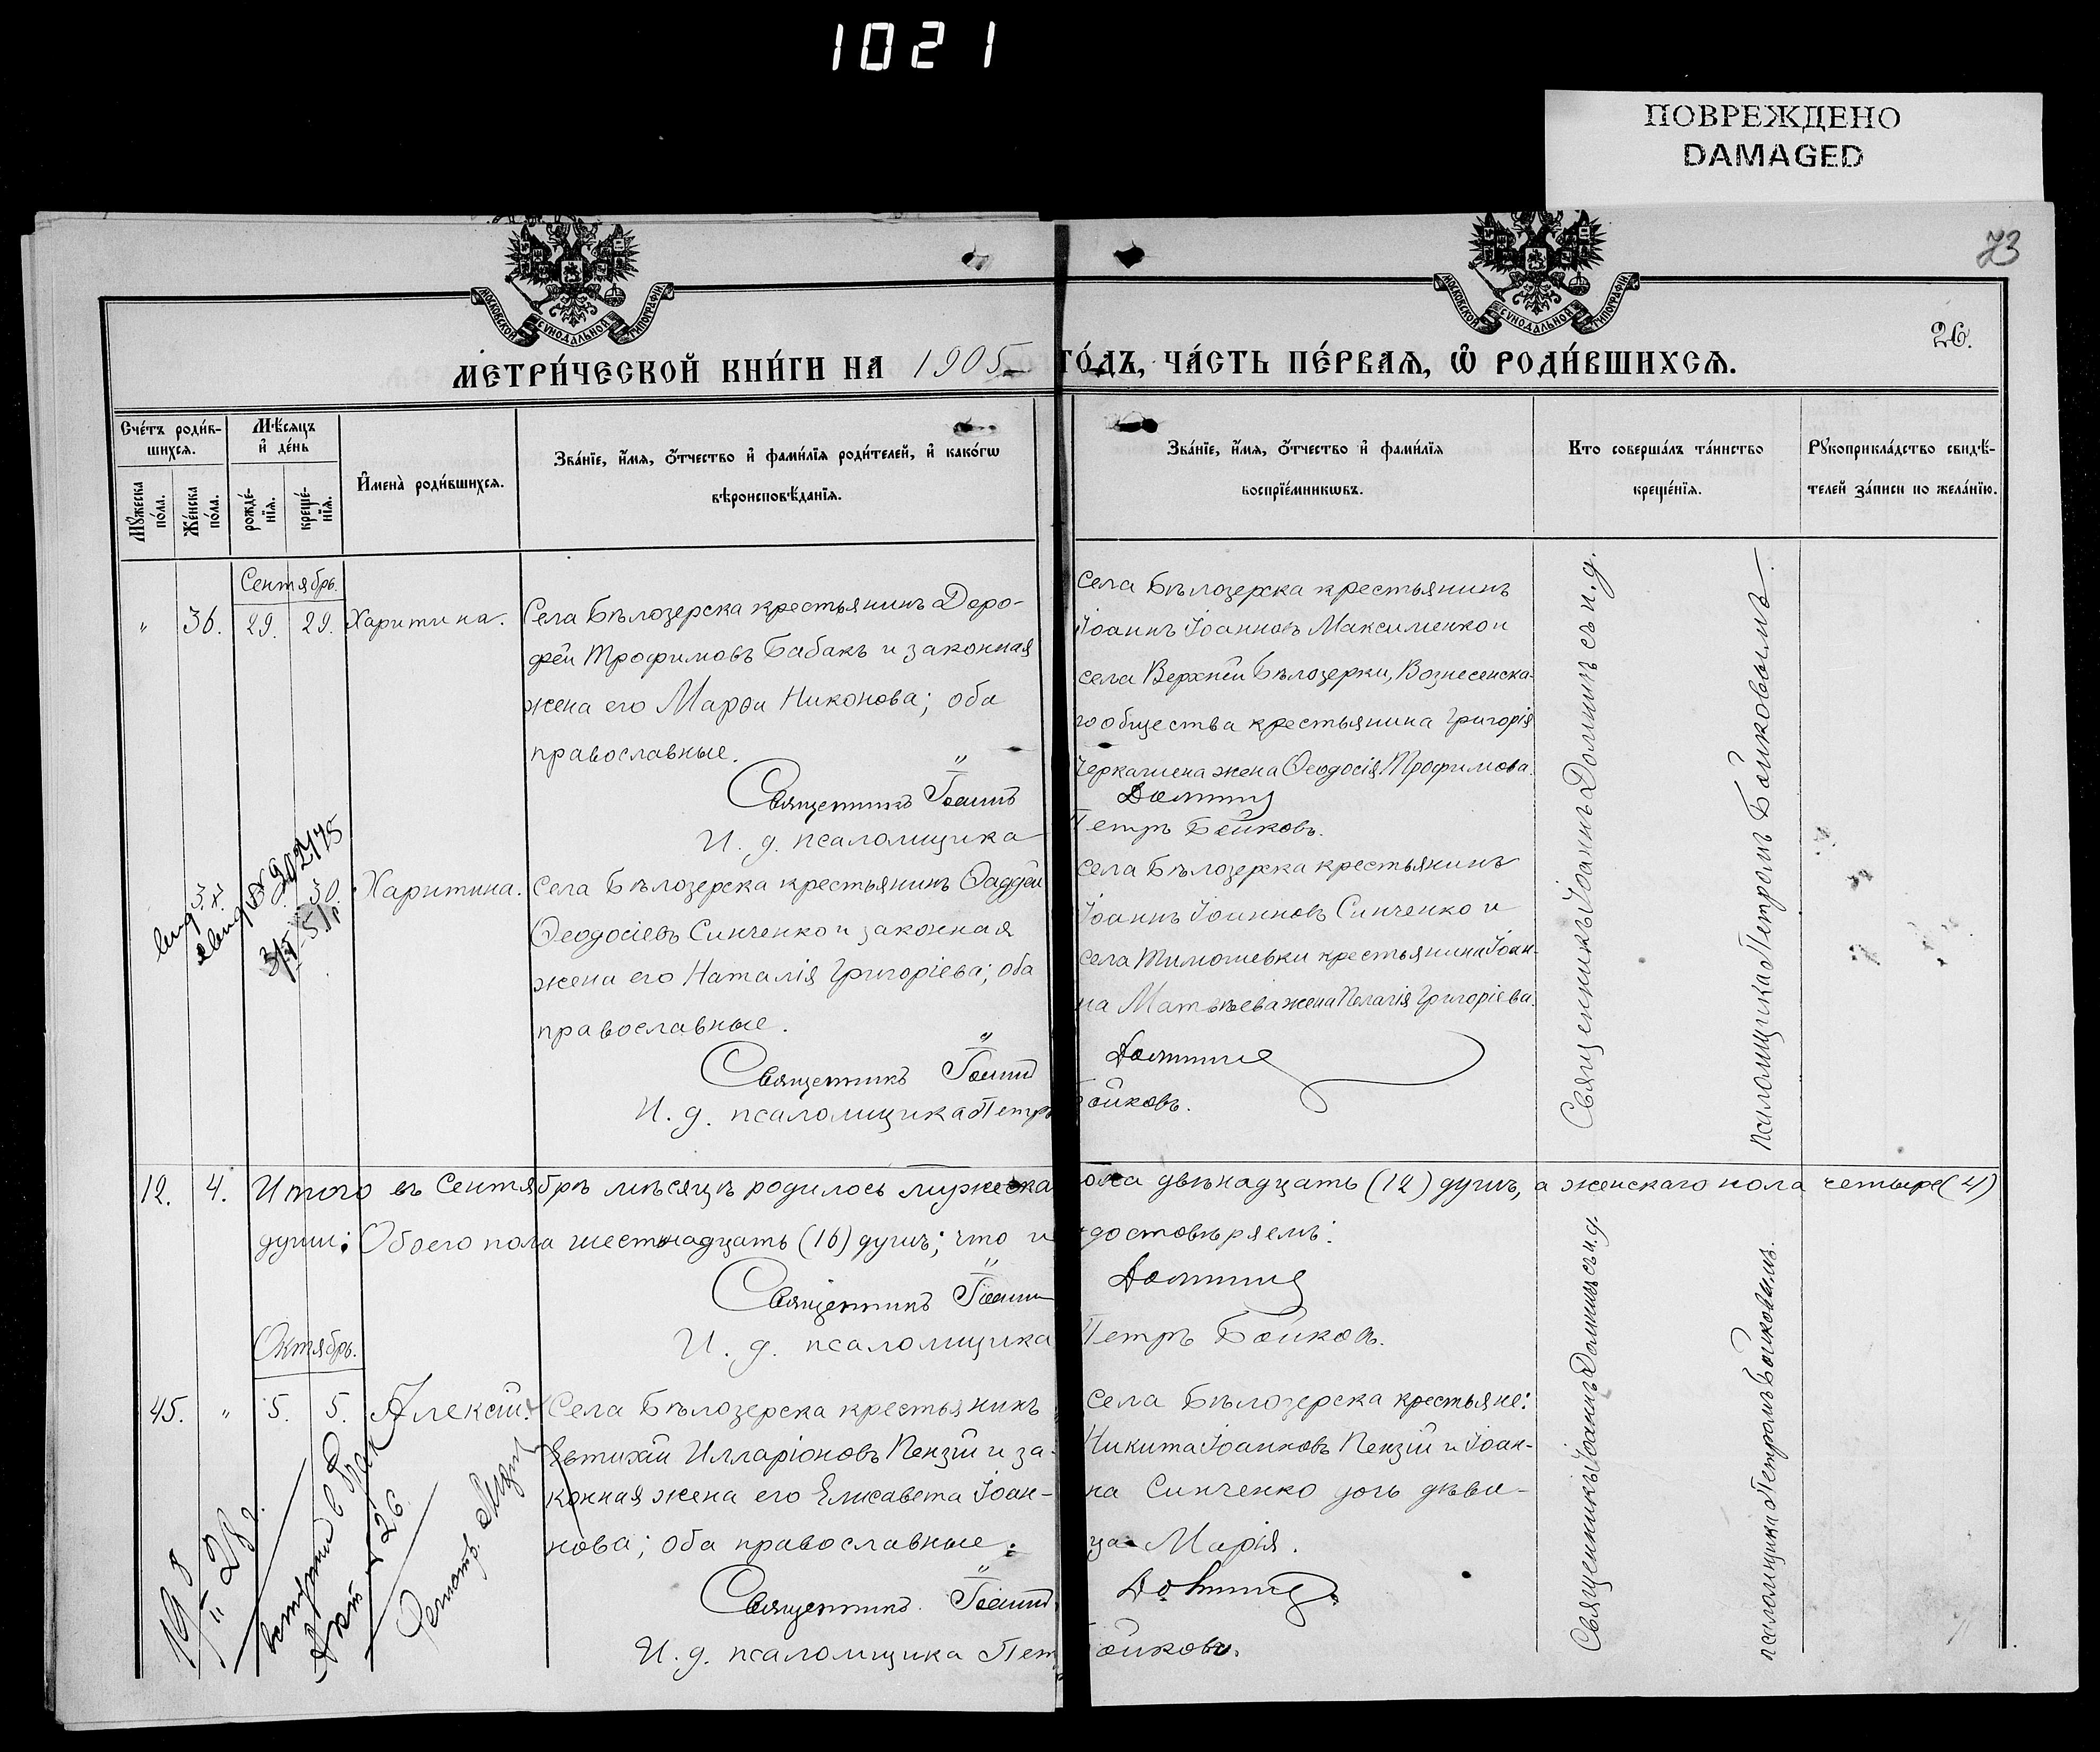 1021
ПОВРЕЖДЕНО
DAMAGED
73
26.
МОСКОВСКОЙ СѴНОДАЛЬНОЙ ТИПОГРАФІИ
МОСКОВСКОЙ СѴНОДАЛЬНОЙ ТИПОГРАФІИ
МЕТРИ́ЧЕСКОЙ КНИ́ГИ НА 1905 ГО́ДЪ, ЧА́СТЬ ПЕ́РВАЯ, Ѡ РОДИ́ВШИХСЯ.
Сче́тъ роди́в-
шихся.
Мѣ́сяцъ
и де́нь
Мꙋ́жеска по́ла.
Же́нска по́ла.
рожде́-
нїя.
креще́-
нїя.
И҆мена̀ роди́вшихся.
Зва́нїе, и҆́мя, ѻ҆́тчество и҆ фами́лїя роди́телей, и҆ како́гѡ
вѣроисповѣ́данїя.
Зва́нїе, и҆́мя, ѻ҆́тчество и҆ фами́лїя
воспрїе́мникѡвъ.
Кто соверша́лъ та́инство
креще́нїя.
Рꙋкоприкла́дство свидѣ́-
телей за́писи по жела́нїю.
Сентябрь.
" 36. 29. 29. Харитина.
Села Бѣлозерска крестьянинъ Доро-
фей Трофимовъ Бабакъ и законная
жена его Марѳа Никонова; оба
православные.
Священникъ Іоаннъ
И. д. псаломщика
Села Бѣлозерска крестьянинъ
Іоаннъ Іоанновъ Максименко и
села Верхней Бѣлозерки, Вознесенска-
го общества крестьянина Григорія
жена Ѳеодосія Трофимова.
Долинъ
Петръ Бойковъ.
Священникъ Іоаннъ Долинъ съ и. д.
псаломщика Петромъ Бойковымъ.
30. Харитина.
Села Бѣлозерска крестьянинъ Ѳаддей
Ѳеодосіевъ Синченко и законная
жена его Наталія Григоріева; оба
православные.
Священникъ Іоаннъ
И. д. псаломщика Петръ
Села Бѣлозерска крестьянинъ
Іоаннъ Іоанновъ Синченко и
села Тимошевки крестьянина Іоан-
на Матвѣева жена Пелагія Григоріева.
Долинъ
Бойковъ.
12. 4. Итого въ Сентябрѣ мѣсяцѣ родилось мужеска пола двѣнадцать (12) душъ, а женскаго пола четыре (4)
души: Обоего пола шестнадцать (16) душъ; что и удостовѣряемъ:
Священникъ Іоаннъ Долинъ
И. д. псаломщика Петръ Бойковъ.
Октябрь.
45. " 5. 5. Алексій.
Села Бѣлозерска крестьянинъ
Евтихій Илларіоновъ Пензій и за-
конная жена его Елисавета Іоан-
нова; оба православные.
Священникъ Іоаннъ
И. д. псаломщика Пет
Села Бѣлозерска крестьяне:
Никита Іоанновъ Пензій и Іоан-
на Синченко дочь дѣви-
ца Марія.
Долинъ
Бойковъ.
Священникъ Іоаннъ Долинъ съ и. д.
псаломщика Петромъ Бойковымъ.
вступил в брак
Акт № 26